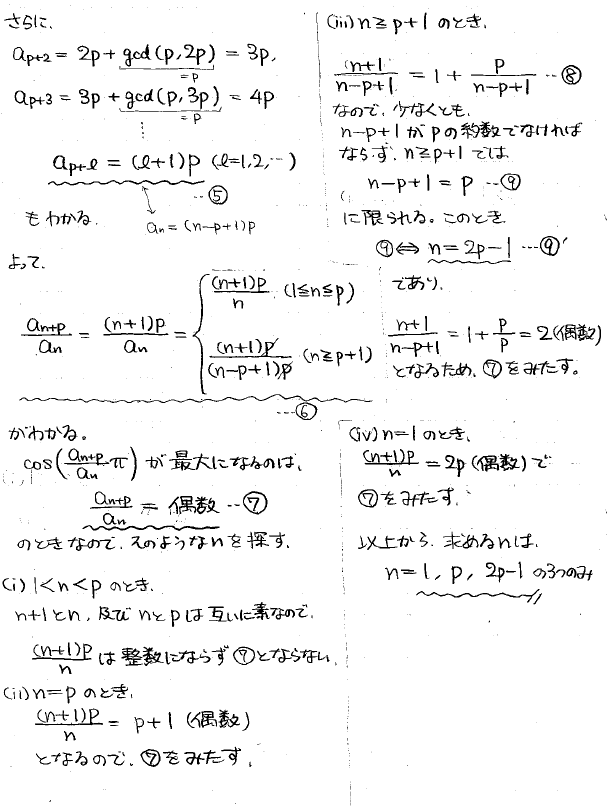 さらに、
a_{p+2} = 2p + gcd(p, 2p) = 3p,
= p
a_{p+3} = 3p + gcd(p, 3p) = 4p
= p
⋮
a_{p+ℓ} = (ℓ+1)p (ℓ=1,2,…)
…⑤
もわかる.
a_n = (n-p+1)p
よって、
a_{n+p}/a_n = (n+1)p/a_n = { (n+1)p/n (1≦n≦p)
(n+1)p/(n-p+1)p (n≧p+1)
…⑥
がわかる。
cos(a_{n+p}/a_n π) が最大になるのは、
a_{n+p}/a_n = 偶数 …⑦
のときなので、そのようなnを探す.
(i) 1<n<p のとき.
n+1とn, 及びnとpは互いに素なので.
(n+1)p/n は整数にならず⑦とならない.
(ii) n=p のとき.
(n+1)p/n = p+1 (偶数)
となるので、⑦をみたす.
(iii) n≧p+1 のとき.
(n+1)/(n-p+1) = 1 + p/(n-p+1) …⑧
なので、少なくとも、
n-p+1がpの約数でなければ
ならず、n≧p+1では
n-p+1 = p …⑨
に限られる。このとき
⑨⇔ n=2p-1 …⑨'
であり、
(n+1)/(n-p+1) = 1 + p/p = 2(偶数)
となるため、⑦をみたす。
(iv) n=1 のとき、
(n+1)p/n = 2p (偶数) で
⑦をみたす.
以上から、求めるnは、
n=1, p, 2p-1 の3つのみ